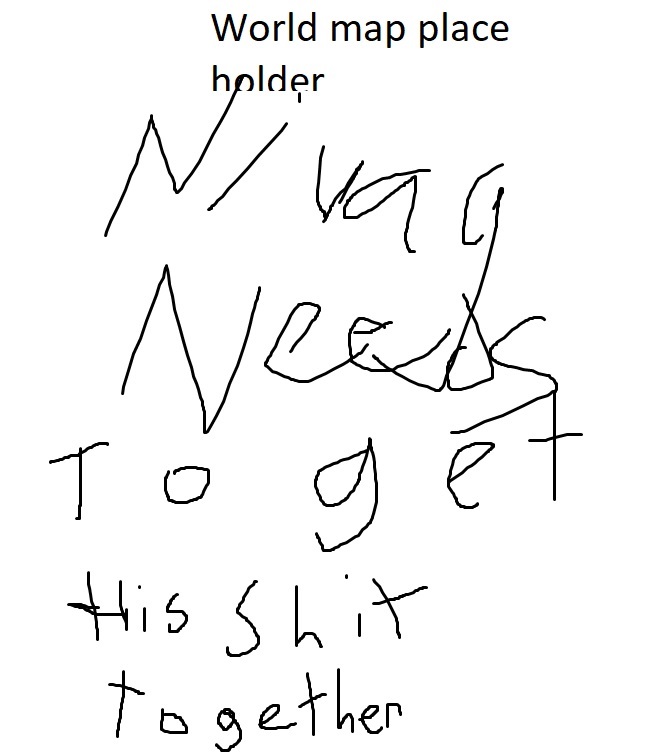 World map place
holder
Nivag
Needs
To get
His shit
together